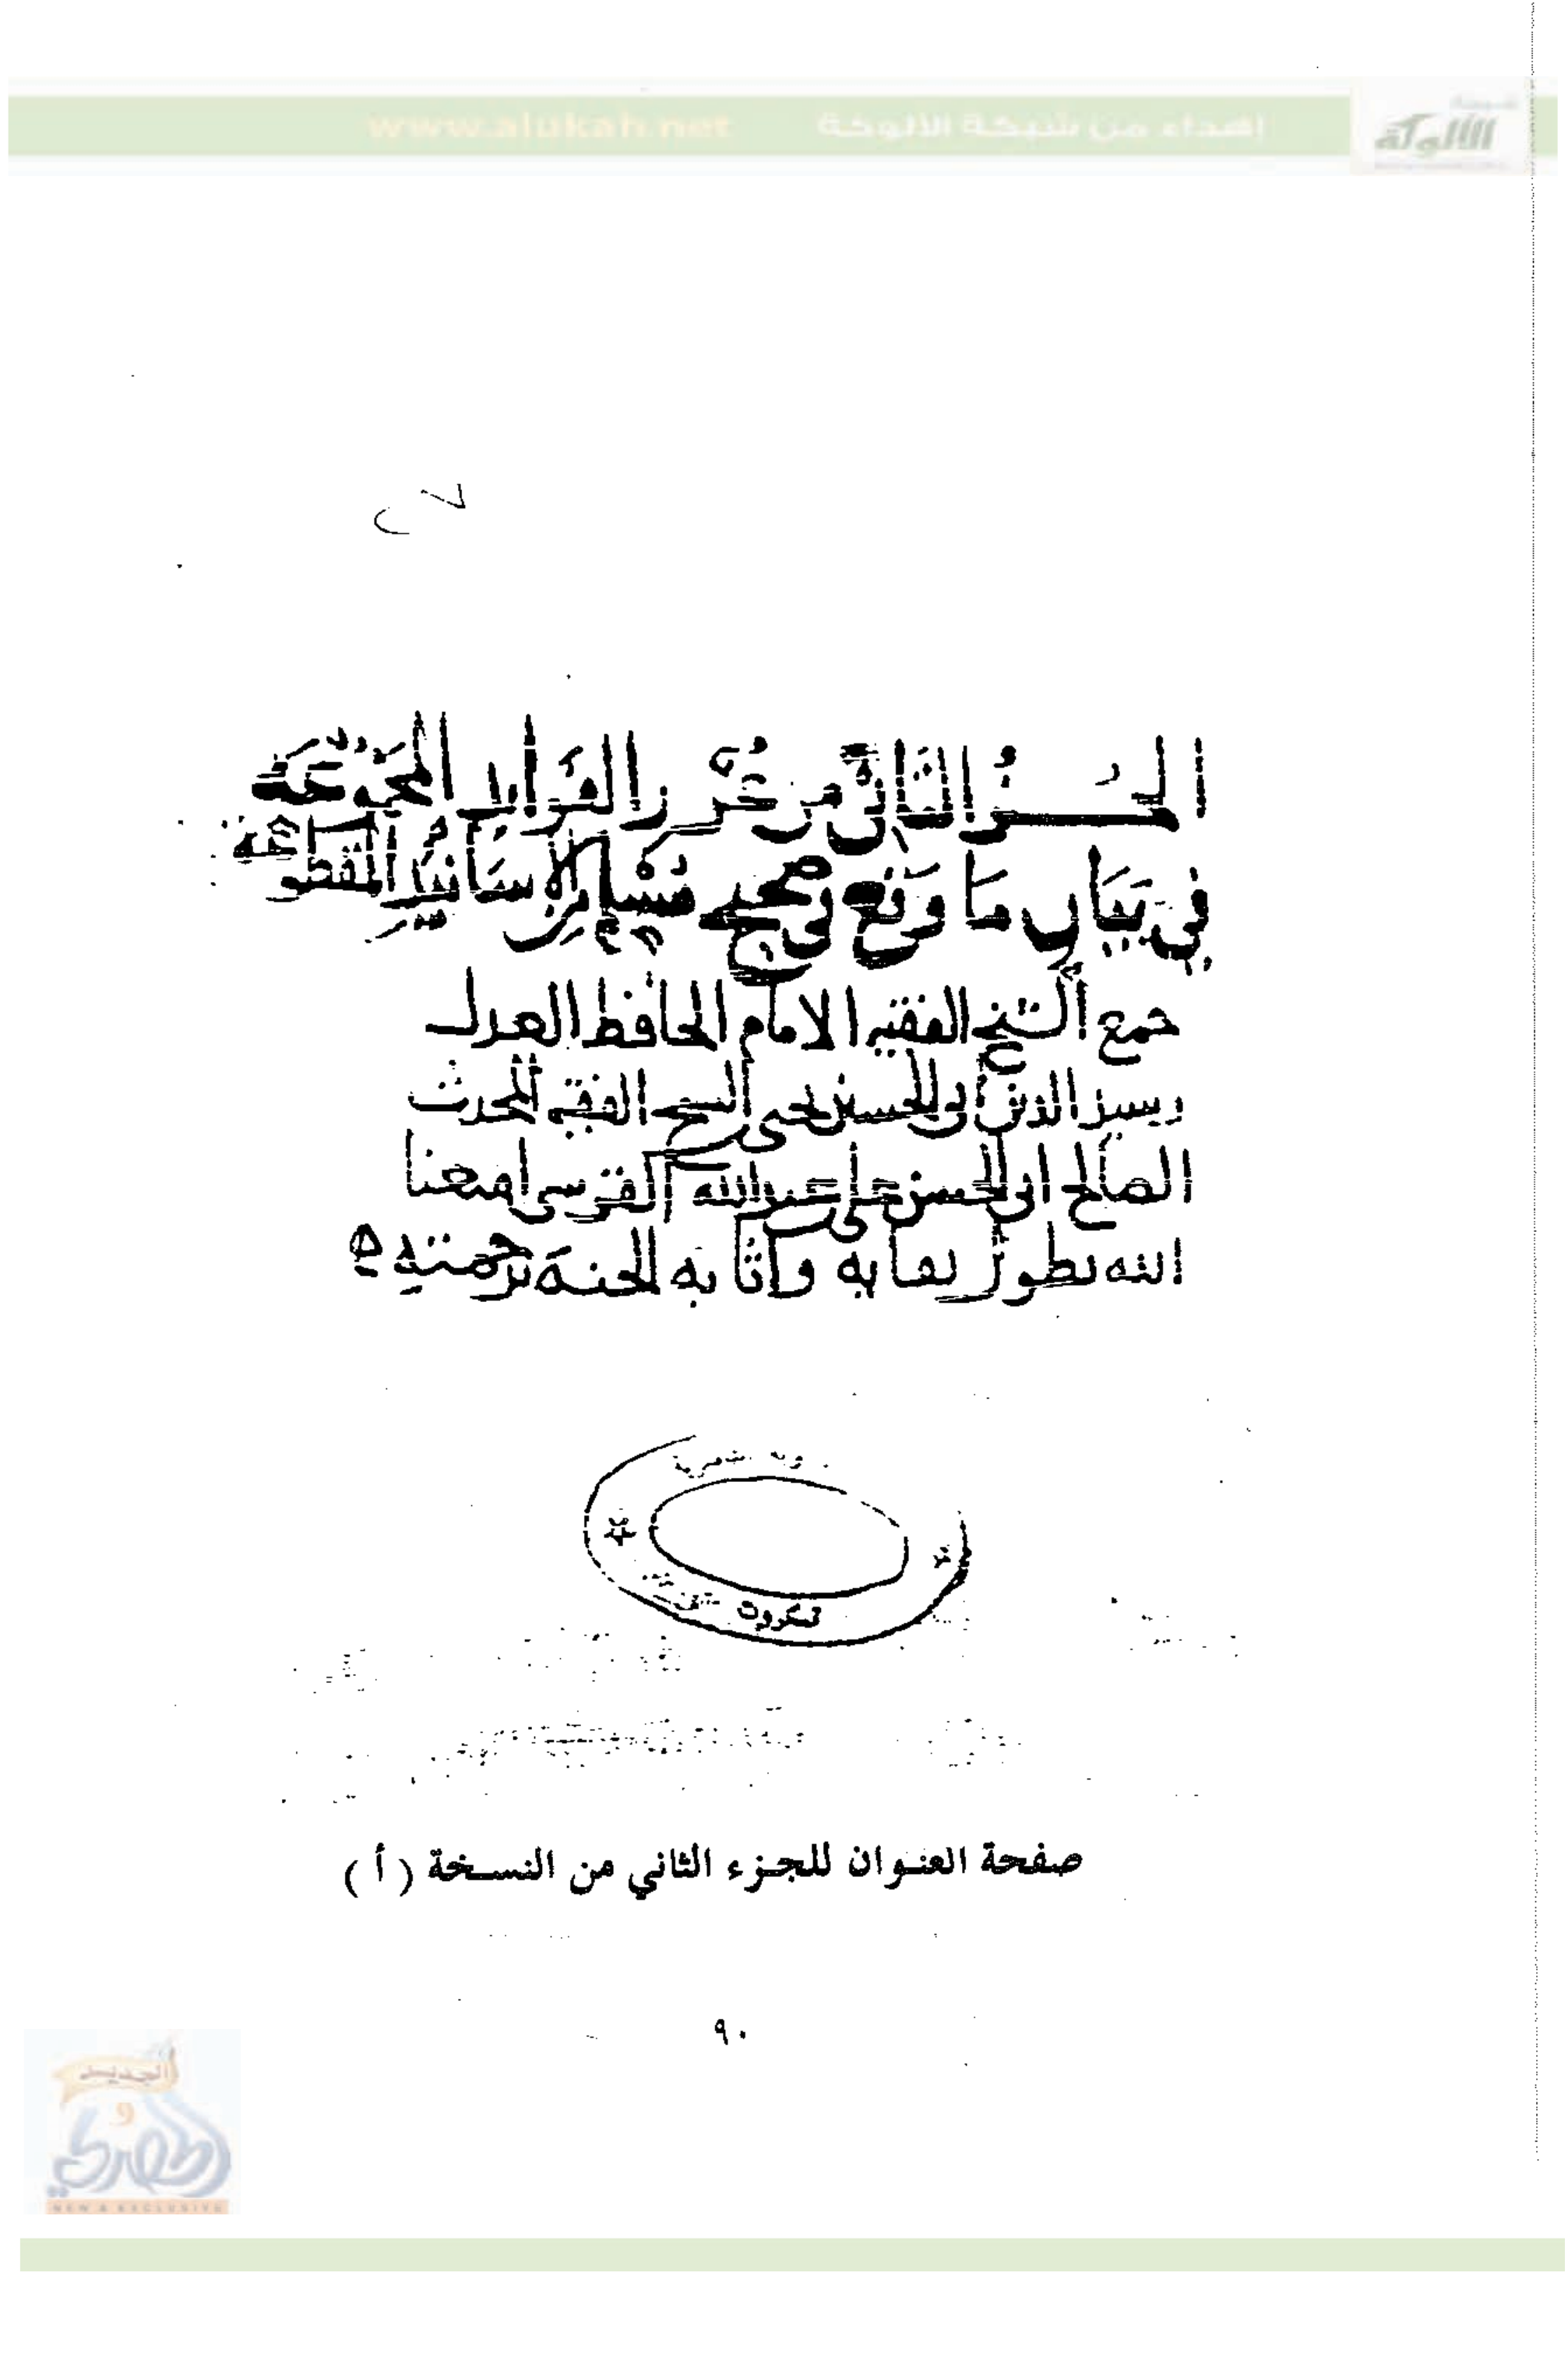 www.alukah.net اهداء من شبكة الألوكة
شبكة
الألوكة
الجزُؤ الثَّانيِّ من غُرَرِ الفَوَائد المجَمُوعَة
فيِ بَيَانِ مَا وَقَعَ في صحيح مُسْلِمٍ مِنَ الاسَانيْدِ المَقطوعَة
جمع الشيخ الفقيه الامام الحافظ العدل
رشيد الدين أبي الحسين يحيى بن الشيخ الفقيه المحدث
الصالح ابي الحسن علي بن عبد الله القرشي امتعنا
الله بطول بقايه واثابه الجنة برحمته ه
صفحة العنوان للجزء الثاني من النسخة ( أ )
٩٠
الجديد
و
الحصري
NEW & EXCLUSIVE